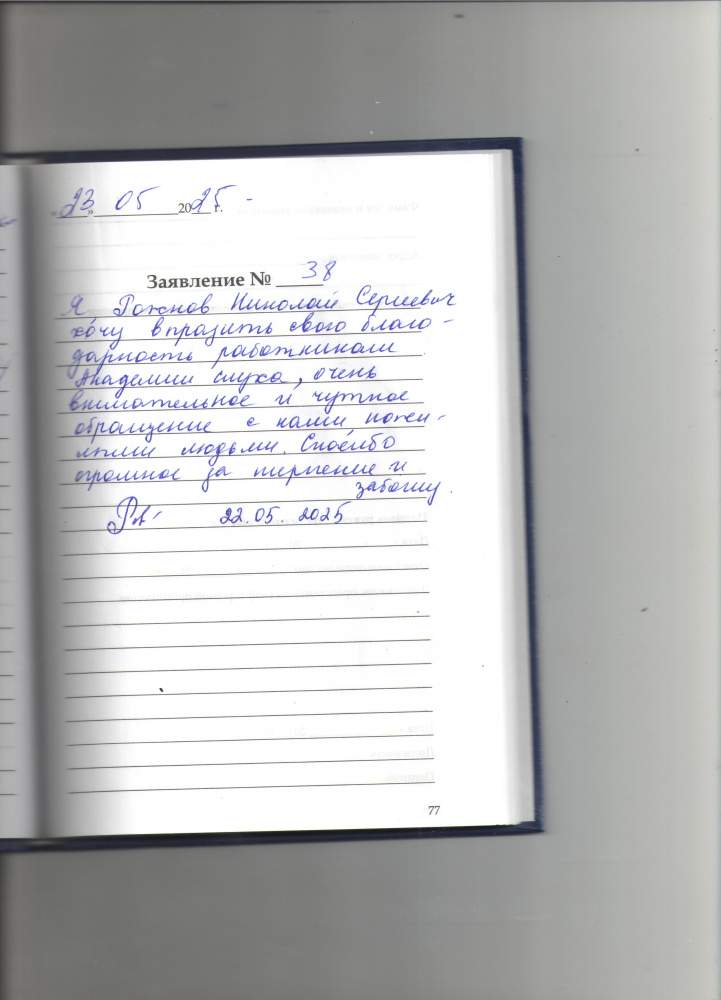 « 23 » 05 2025 г.
Заявление № 38
Я Рожнов Николай Сергеевич
хочу впразить свого благо-
дарность работникам
Академии слуха, очень
внимательное и чуткое
обращение с нами пожи-
лыми людьми. Спасибо
огромное за терпение и
заботу.
22.05.2025
77